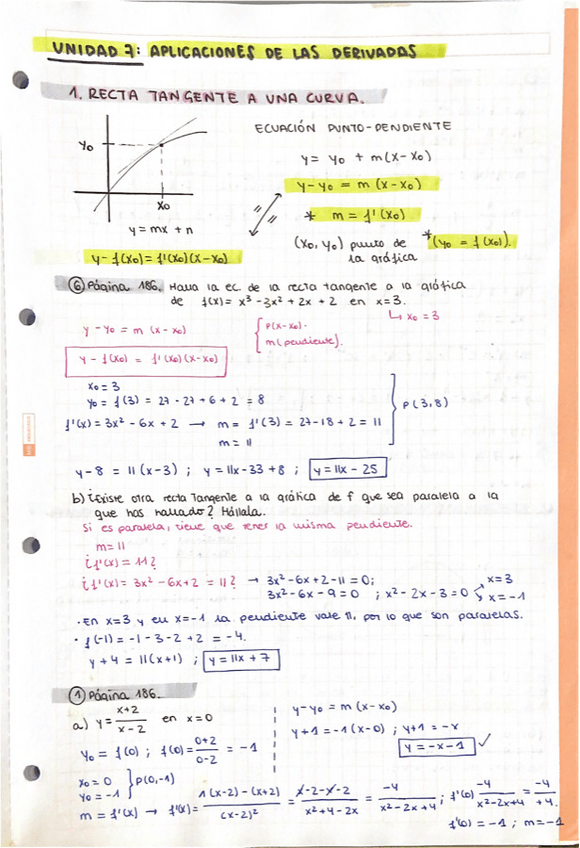 UNIDAD 7: APLICACIONES DE LAS DERIVADAS
1. RECTA TANGENTE A UNA CURVA.
y0
x0
y = mx + n
y - f(x0) = f'(x0)(x-x0)
ECUACIÓN PUNTO-PENDIENTE
y = y0 + m(x-x0)
y-y0 = m (x-x0)
* m = f'(x0)
(x0, y0) punto de la gráfica
*(y0 = f(x0)).
⑥ Página 186. Halla la ec. de la recta tangente a la gráfica
de f(x) = x³ - 3x² + 2x + 2 en x=3.
↳ x0 = 3
y - y0 = m (x-x0)
{ P(x-x0).
m (pendiente).
y - f(x0) = f'(x0)(x-x0)
x0 = 3
y0 = f(3) = 27 - 27 + 6 + 2 = 8
f'(x) = 3x² - 6x + 2 → m = f'(3) = 27-18 + 2 = 11
m = 11
P(3,8)
y-8 = 11(x-3) ; y = 11x-33 +8 ; y = 11x - 25
b) ¿Existe otra recta tangente a la gráfica de f que sea paralela a la
que has hallado? Hállala.
Si es paralela, tiene que tener la misma pendiente.
m = 11
¿f'(x) = 11?
¿f'(x) = 3x² - 6x + 2 = 11? → 3x² - 6x + 2 - 11 = 0;
3x² - 6x - 9 = 0 ; x² - 2x - 3 = 0
x = 3
x = -1
· En x=3 y en x=-1 la pendiente vale 11, por lo que son paralelas.
· f(-1) = -1 - 3 - 2 + 2 = -4.
y + 4 = 11(x+1) ; y = 11x + 7
① Página 186.
a) y = x+2 / x-2 en x=0
y0 = f(0) ; f(0) = 0+2 / 0-2 = -1
x0 = 0
y0 = -1
} P(0,-1)
y-y0 = m(x-x0)
y+1 = -1(x-0) ; y+1 = -x
y = -x-1 ✓
m = f'(x) → f'(x) = 1(x-2) - (x+2) / (x-2)² = x-2-x-2 / x²+4-2x = -4 / x²-2x+4 ; f'(0) -4 / x²-2x+4 = -4 / +4.
f'(0) = -1 ; m = -1